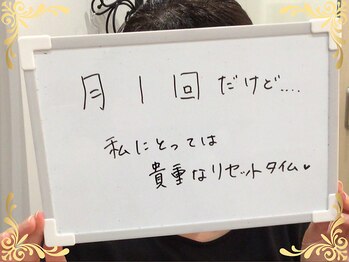 月1回だけど....
私にとっては
貴重なリセットタイム♥